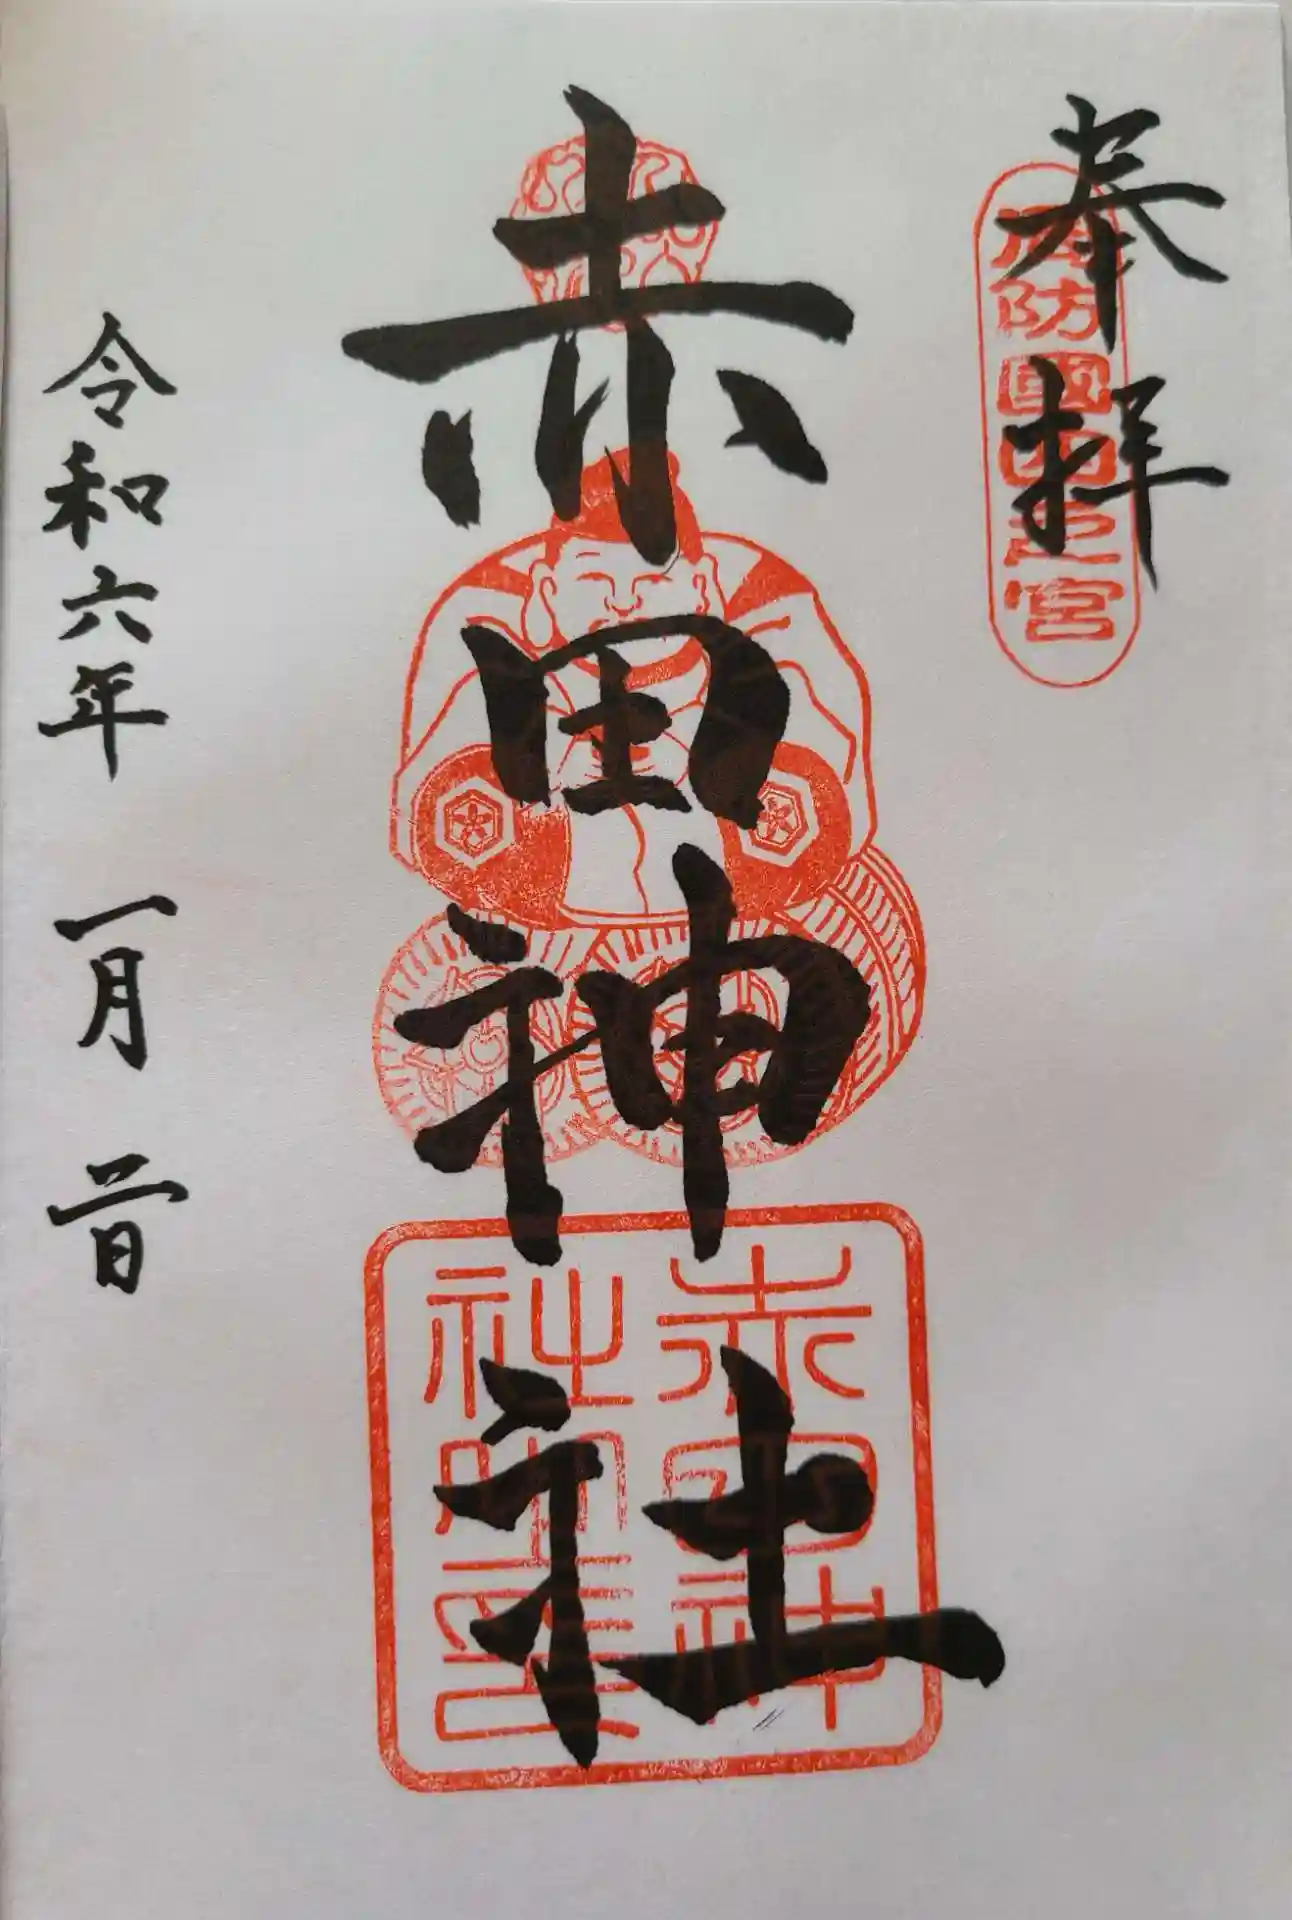 奉拝
周防國四之宮
赤田神社
赤田神
社御璽
令和六年 一月 二日